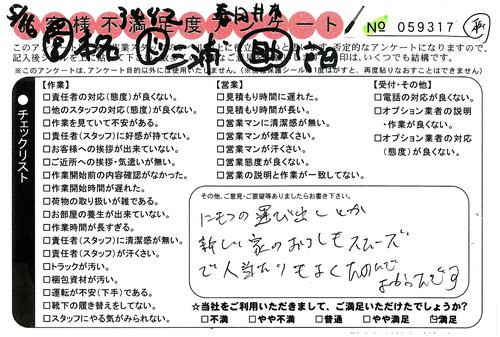 5/16
お客様不満足度アンケート
3442
春日井東
No 059317
このアンケートは
否定的なアンケートになりますので、
印は、いくつでも結構です。
※このアンケートは、アンケート目的以外には使用いたしません。
がすと、再度貼りなおすことはできません
チェックリスト
【作業】
□責任者の対応(態度)が良くない。
□他のスタッフの対応(態度)が良くない。
□作業を見ていて不安がある。
□責任者(スタッフ)に好感が持てない。
□お客様への挨拶が出来ていない。
□ご近所への挨拶・気遣いが無い。
□作業開始前の内容確認がなかった。
□作業開始時間が遅れた。
□荷物の取り扱いが雑である。
□お部屋の養生が出来ていない。
□作業時間が長すぎる。
□責任者(スタッフ)に清潔感が無い。
□責任者(スタッフ)が汗くさい。
□トラックが汚い。
□梱包資材が汚い。
□運転が不安(下手)である。
□靴下の履き替えをしてない。
□スタッフにやる気がみられない。
【営業】
□見積もり時間に遅れた。
□見積もり時間が長い。
□営業マンに清潔感が無い。
□営業マンが煙草くさい。
□営業マンが汗くさい。
□営業態度が良くない。
□営業の説明と作業が一致してない。
【受付・その他】
□電話の対応が良くない。
□オプション業者の説明
・作業が良くない。
□オプション業者の対応
(態度)が良くない。
その他、ご意見・ご要望等ありましたらお書き下さい。
にもつの運び出しとか
新しい家のおろしもスムーズ
で人当たりもよくたのんで
よかったです
☆当社をご利用いただきまして、ご満足いただけたでしょうか?
□不満 □やや不満 □普通 □やや満足 □満足